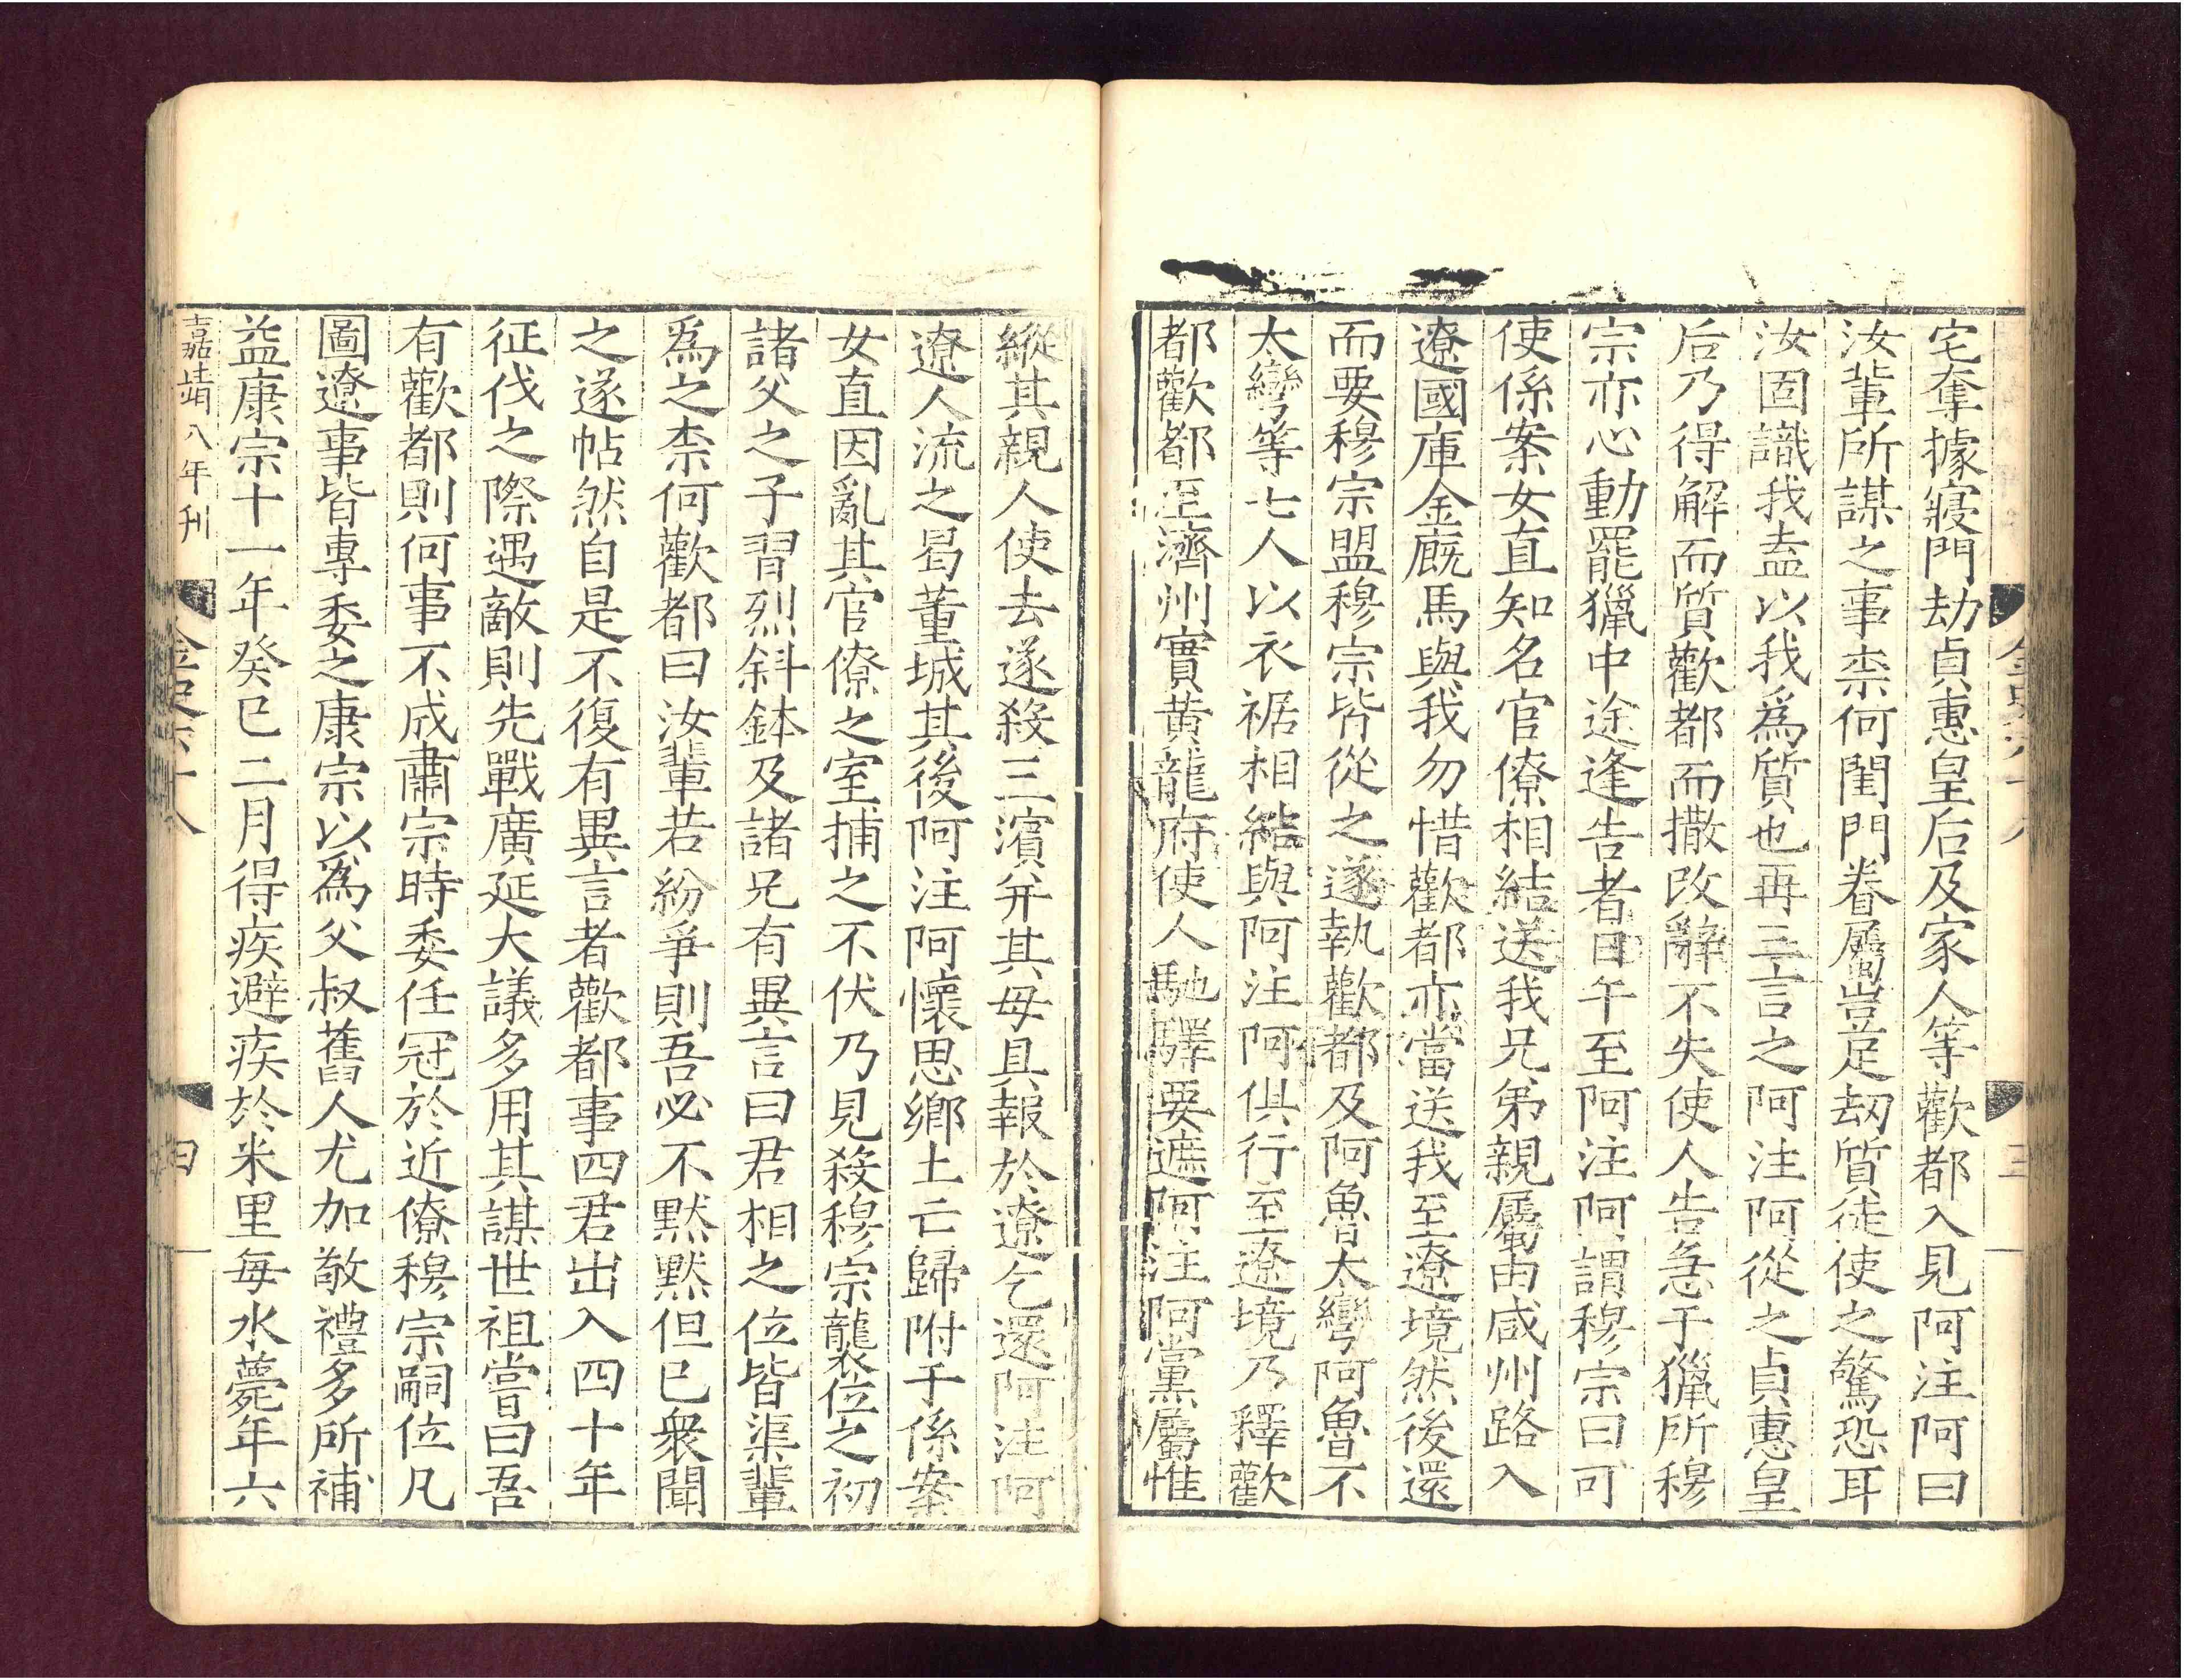 宅奪據寢門劫貞惠皇后及家人等歡都入見阿注阿曰
汝輩所謀之事柰何閨門眷屬豈足刼質徒使之驚恐耳
汝固識我盍以我爲質也再三言之阿注阿從之貞惠皇
后乃得解而質歡都而撒改辭不失使人告急于獵所穆
宗亦心動罷獵中途逢告者日午至阿注阿謂穆宗曰可
使係案女直知名官僚相結送我兄弟親屬由咸州路入
遼國庫金廐馬與我勿惜歡都亦當送我至遼境然後還
而要穆宗盟穆宗皆從之遂執歡都及阿魯太彎阿魯不
大彎等七人以衣裾相結與阿注阿俱行至遼境乃釋歡
都歡都至濟州實黃龍府使人馳驛要遮阿注阿黨屬惟
縱其親人使去遂殺三濱并其母具報於遼乞還阿注阿
遼人流之曷董城其後阿注阿懷思鄉土亡歸附于係案
女直因亂其官僚之室捕之不伏乃見殺穆宗襲位之初
諸父之子習烈斜鉢及諸兄有異言曰君相之位皆渠輩
爲之柰何歡都曰汝輩若紛爭則吾必不黙黙但已衆聞
之遂帖然自是不復有異言者歡都事四君出入四十年
征伐之際遇敵則先戰廣延大議多用其謀世祖嘗曰吾
有歡都則何事不成肅宗時委任冠於近僚穆宗嗣位凡
圖遼事皆專委之康宗以爲父叔舊人尤加敬禮多所補
益康宗十一年癸巳二月得疾避疾於米里每水薨年六
嘉靖八年刊
金史六十八
四